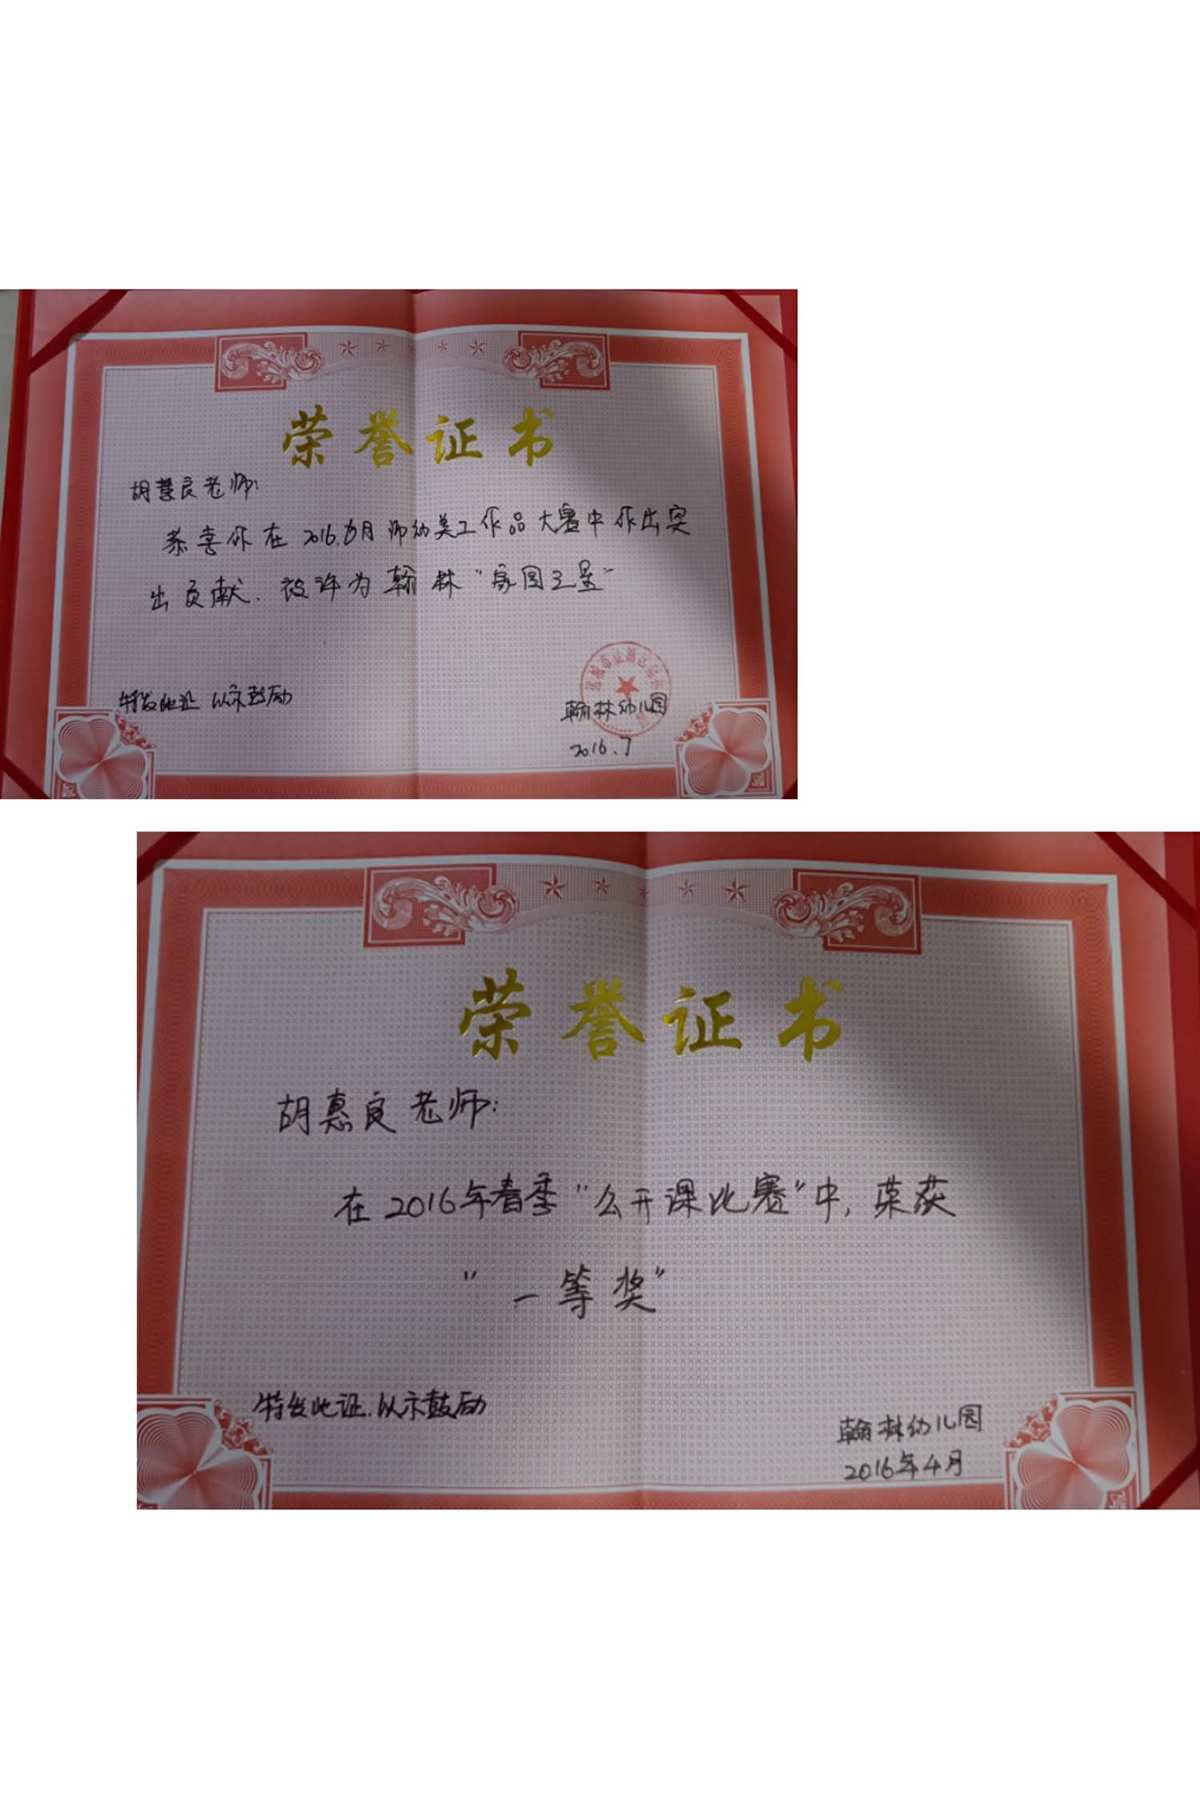 荣誉证书
胡慧良老师:
恭喜你在2016.6月师幼美工作品大赛中作出突
出贡献.被评为翰林“家园之星”
特发此证 以示鼓励
翰林幼儿园
2016.7
荣誉证书
胡惠良老师:
在2016年春季“公开课比赛”中,荣获
“一等奖”
特发此证.以示鼓励
翰林幼儿园
2016年4月